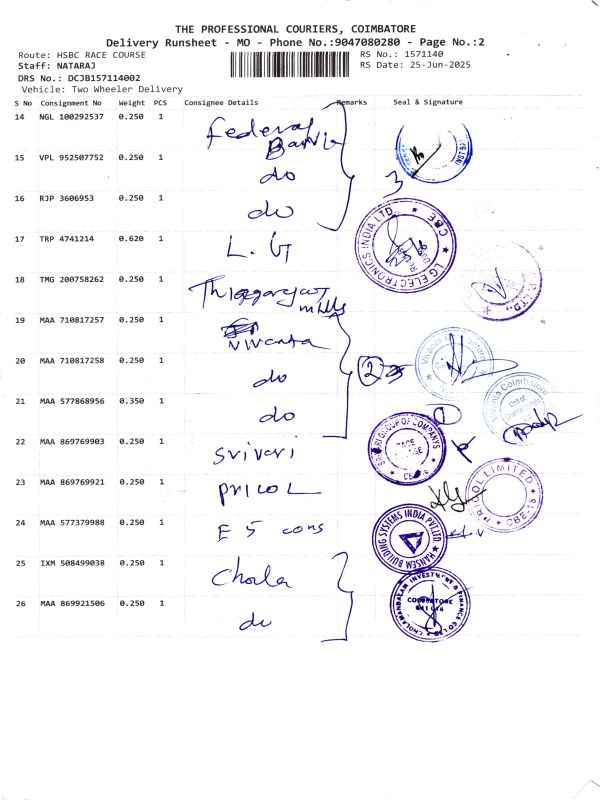 THE PROFESSIONAL COURIERS, COIMBATORE
Delivery Runsheet - MO - Phone No.:9047080280 - Page No.:2
Route: HSBC RACE COURSE RS No.: 1571140
Staff: NATARAJ RS Date: 25-Jun-2025
DRS No.: DCJB157114002
Vehicle: Two Wheeler Delivery
S No Consignment No Weight PCS Consignee Details Remarks Seal & Signature
14 NGL 100292537 0.250 1 Federal Bank
15 VPL 952507752 0.250 1 do
16 RJP 3606953 0.250 1 do 3
17 TRP 4741214 0.620 1 L.G
LG ELECTRONICS INDIA LTD. CBE
18 TMG 200758262 0.250 1 mills
19 MAA 710817257 0.250 1 vivanta
20 MAA 710817258 0.250 1 do 2
21 MAA 577868956 0.350 1 do 1
Vivanta Coimbatore
22 MAA 869769903 0.250 1 Srivari
GROUP OF COMPANYS
23 MAA 869769921 0.250 1 PRICOL
PRICOL LIMITED CBE-18
24 MAA 577379988 0.250 1 E 5 cons
HANSEM BUILDING SYSTEMS INDIA PVT.LTD
25 IXM 508499038 0.250 1 Chola
26 MAA 869921506 0.250 1 do
CHOLAMANDALAM INVESTMENT & FINANCE CO LTD
COIMBATORE